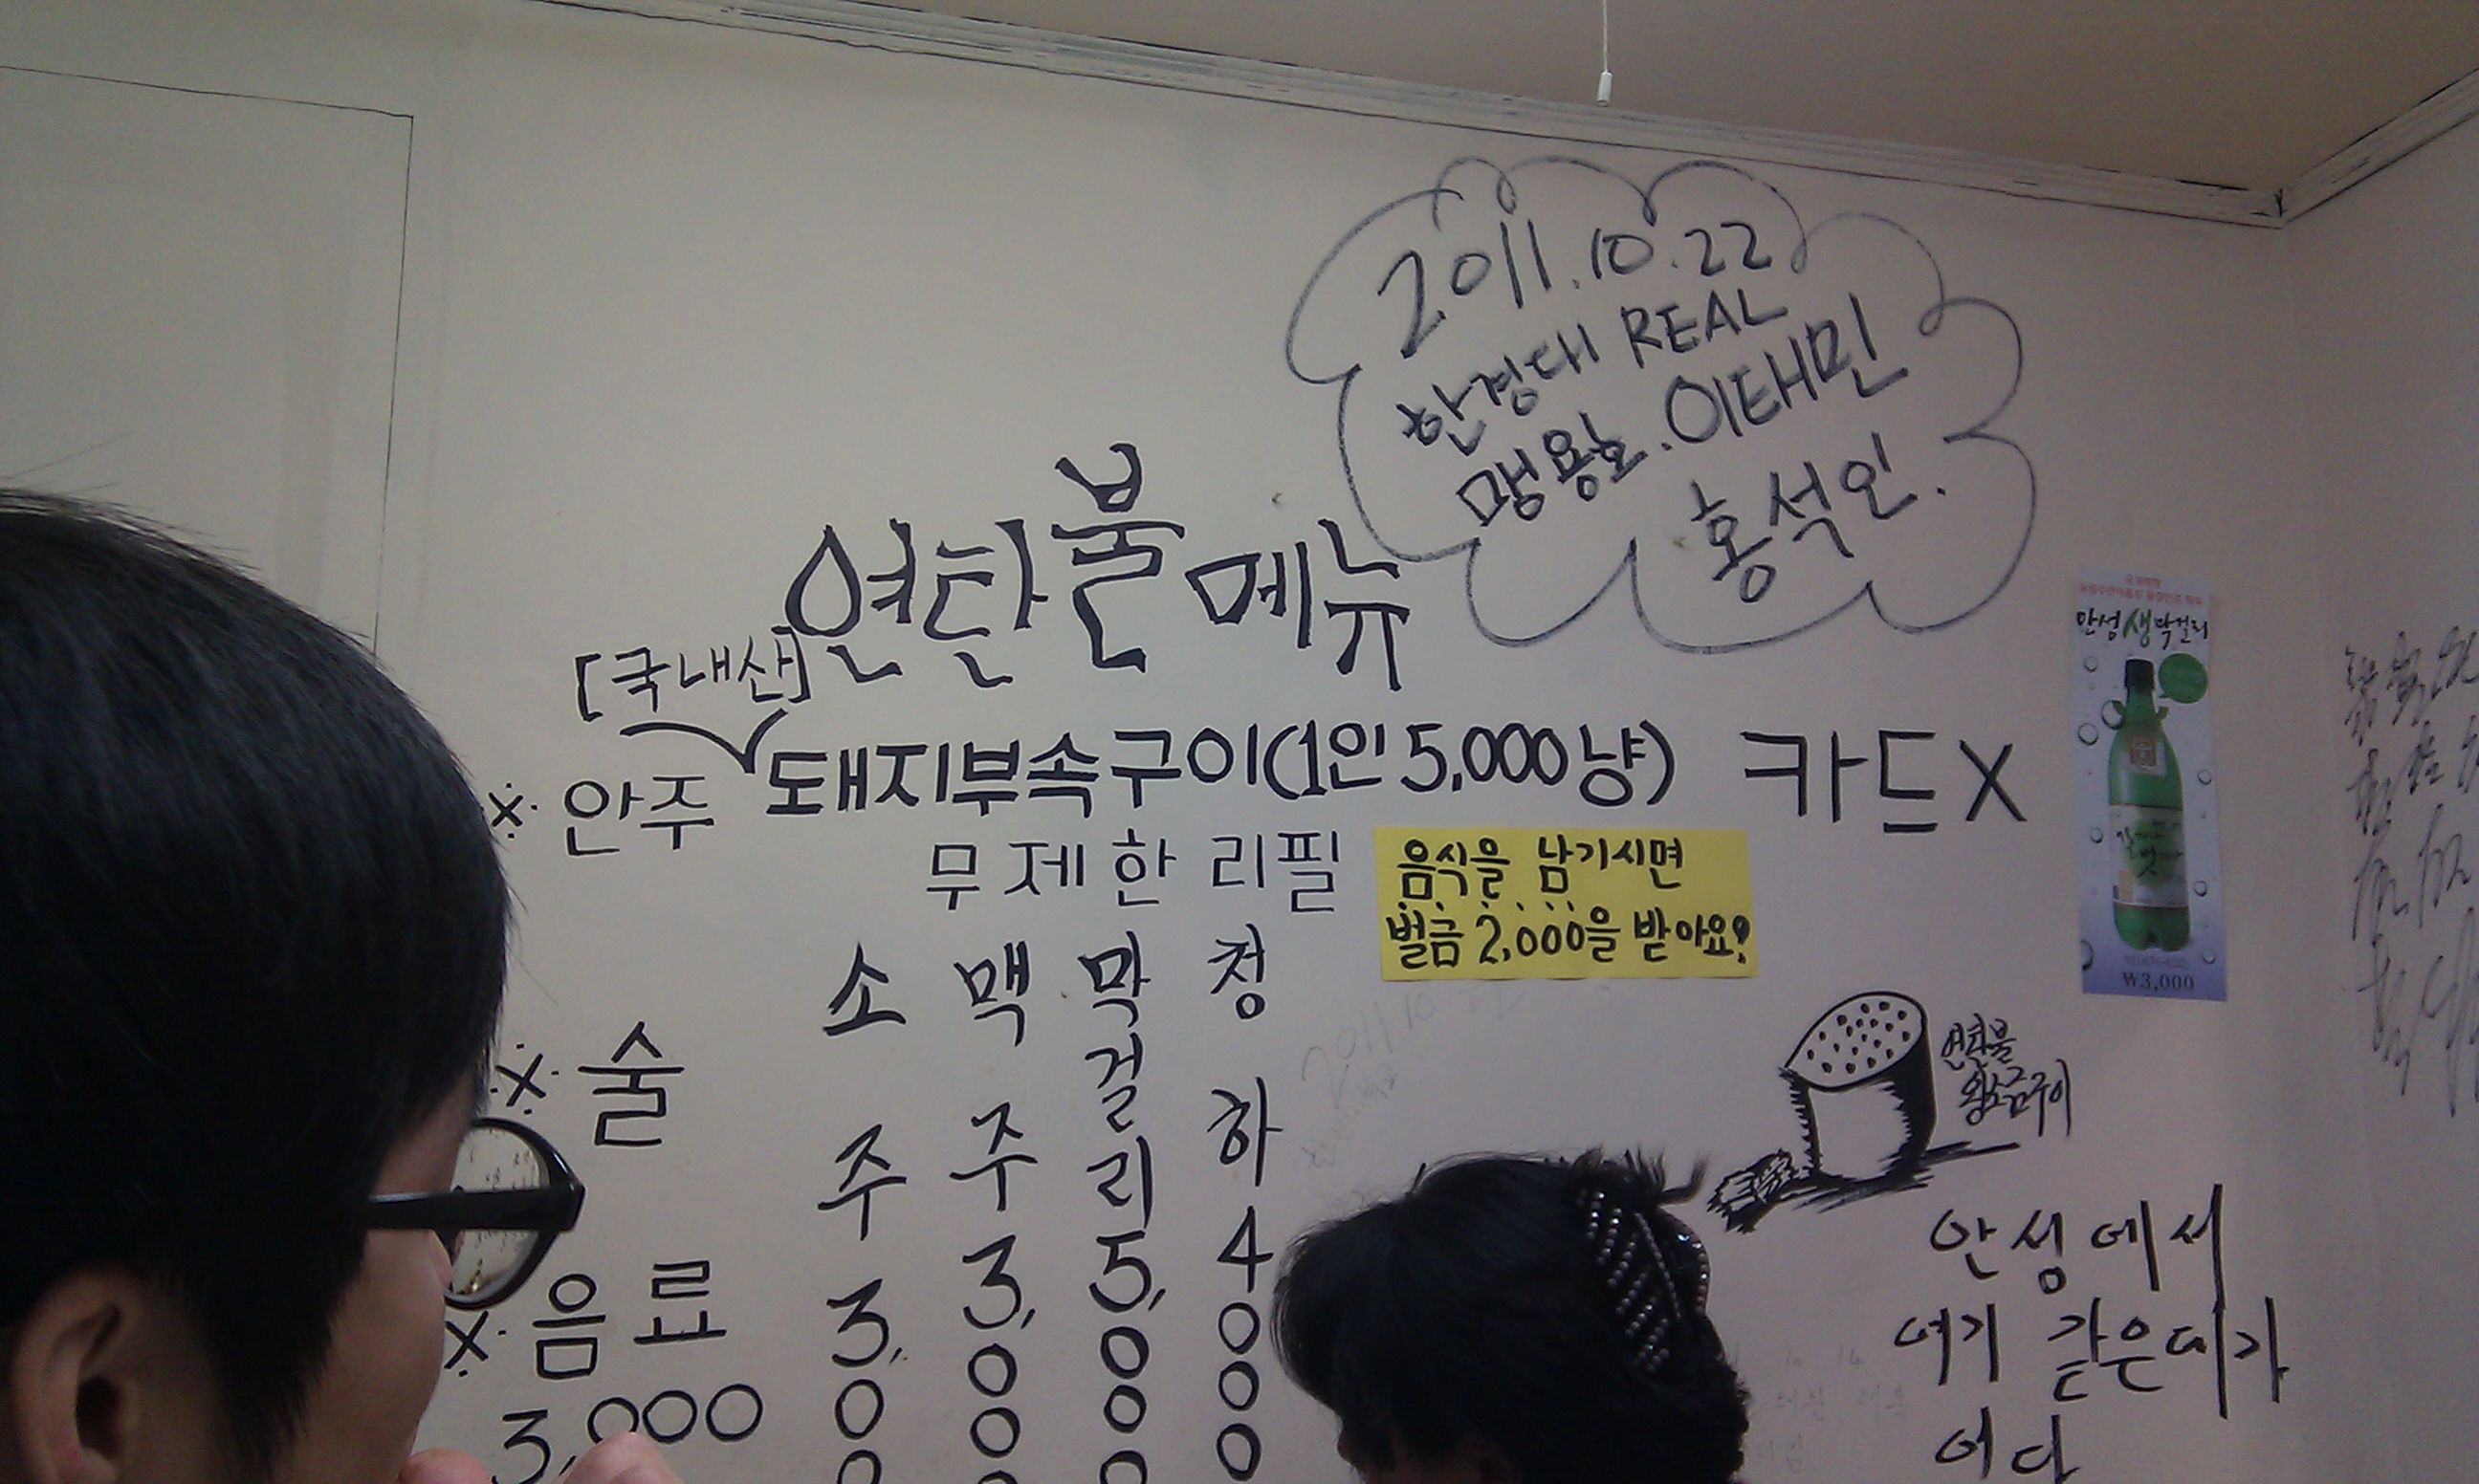 2011.10.22
한경대 REAL
맹용호.이태민
홍석인.
연탄불 메뉴
[국내산]
※ 안주 돼지부속구이(1인 5,000냥) 카드X
무제한 리필
음식을 남기시면
벌금 2,000을 받아요?
※ 술
소주 3,000
맥주 3,000
막걸리 5,000
청하 4000
※ 음료
3,000
안성생막걸리
₩3,000
연탄불
왕소금구이
안성에서
여기 같은데가
어디
2011 10 22